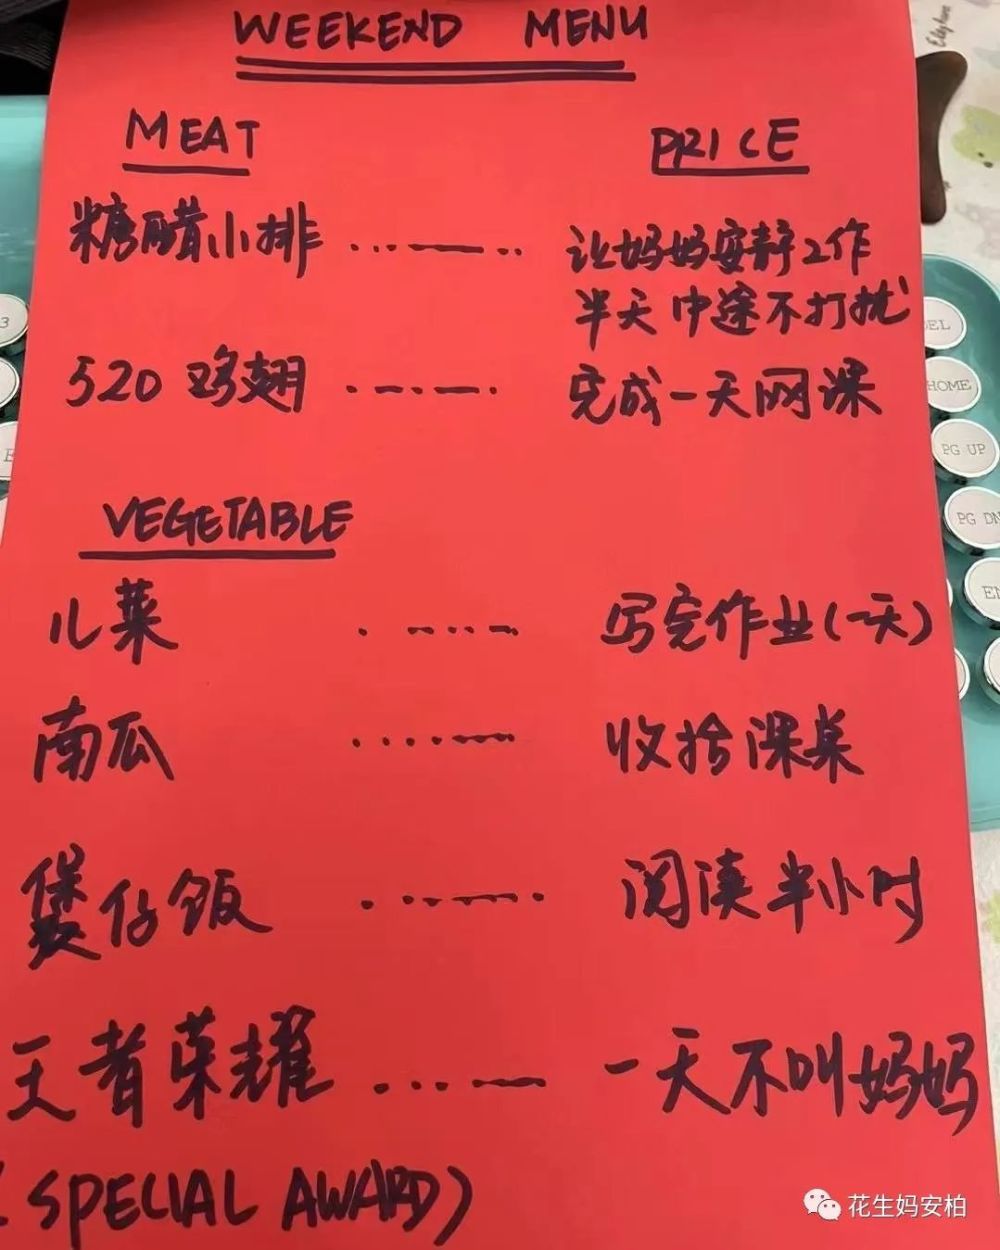 WEEKEND MENU
MEAT PRICE
糖醋小排 ..—.. 让妈妈安静工作
半天中途不打扰
520鸡翅 .—.—. 完成一天网课
VEGETABLE
儿菜 . —..— 写完作业(一天)
南瓜 ....— 收拾课桌
煲仔饭 . ...—. 阅读半小时
王者荣耀 . ..—. 一天不叫妈妈
(SPECIAL AWARD)
3
E
Elephant
DEL
HOME
PG UP
PG DN
EN
花生妈安柏